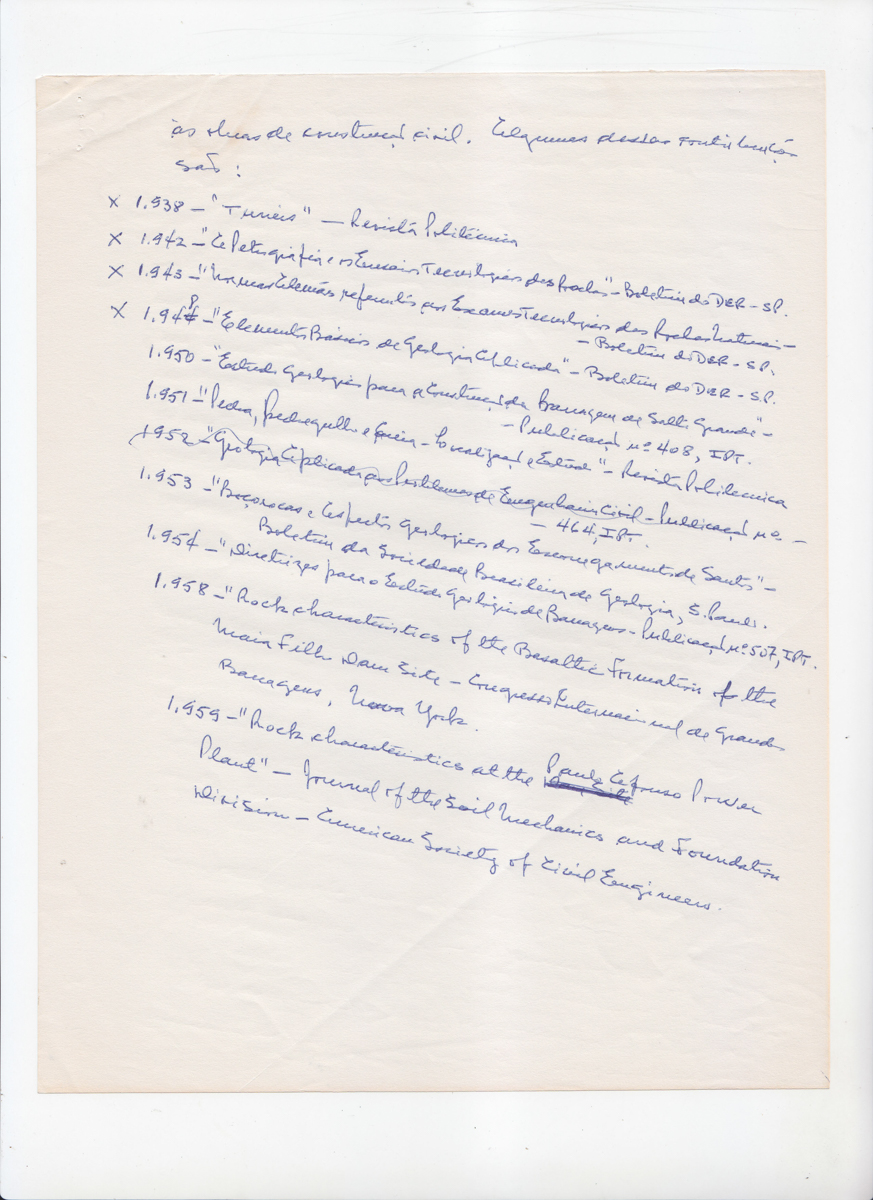 às obras de construção civil. Algumas dessas contribuições
são:
x 1.938 – "Túneis" – Revista Politécnica
x 1.942 – "A Petrografia e os Ensaios Tecnológicos das Rochas" – Boletim do DER – SP.
x 1.943 – "Normas Alemãs referentes aos Exames Tecnológicos das Rochas Naturais –
– Boletim do DER – SP.
x 1.94 ? – "Elementos Básicos de Geologia Aplicada" – Boletim do DER – S.P.
1.950 – "Estudos Geológicos para a Construção da Barragem de Salto Grande" –
– Publicação nº 408, IPT.
1.951 – "Pedra, Pedregulho e Areia – Localização e Estudo" – Revista Politécnica
1952 – "Geologia Aplicada aos Problemas de Engenharia Civil – Publicação nº –
– 464, IPT.
1.953 – "Boçorocas e Aspectos Geológicos dos Escorregamentos de Santos" –
Boletim da Sociedade Brasileira de Geologia, S. Paulo.
1.954 – "Diretrizes para o Estudo Geológico de Barragens – Publicação nº 507, IPT.
1.958 – "Rock characteristics of the Basaltic Formation of the
Maia Filho Dam Site – Congresso Internacional de Grandes
Barragens, Nova York.
1.959 – "Rock characteristics at the Paulo Afonso Power
Plant" – Journal of the Soil Mechanics and Foundation
Division – American Society of Civil Engineers.